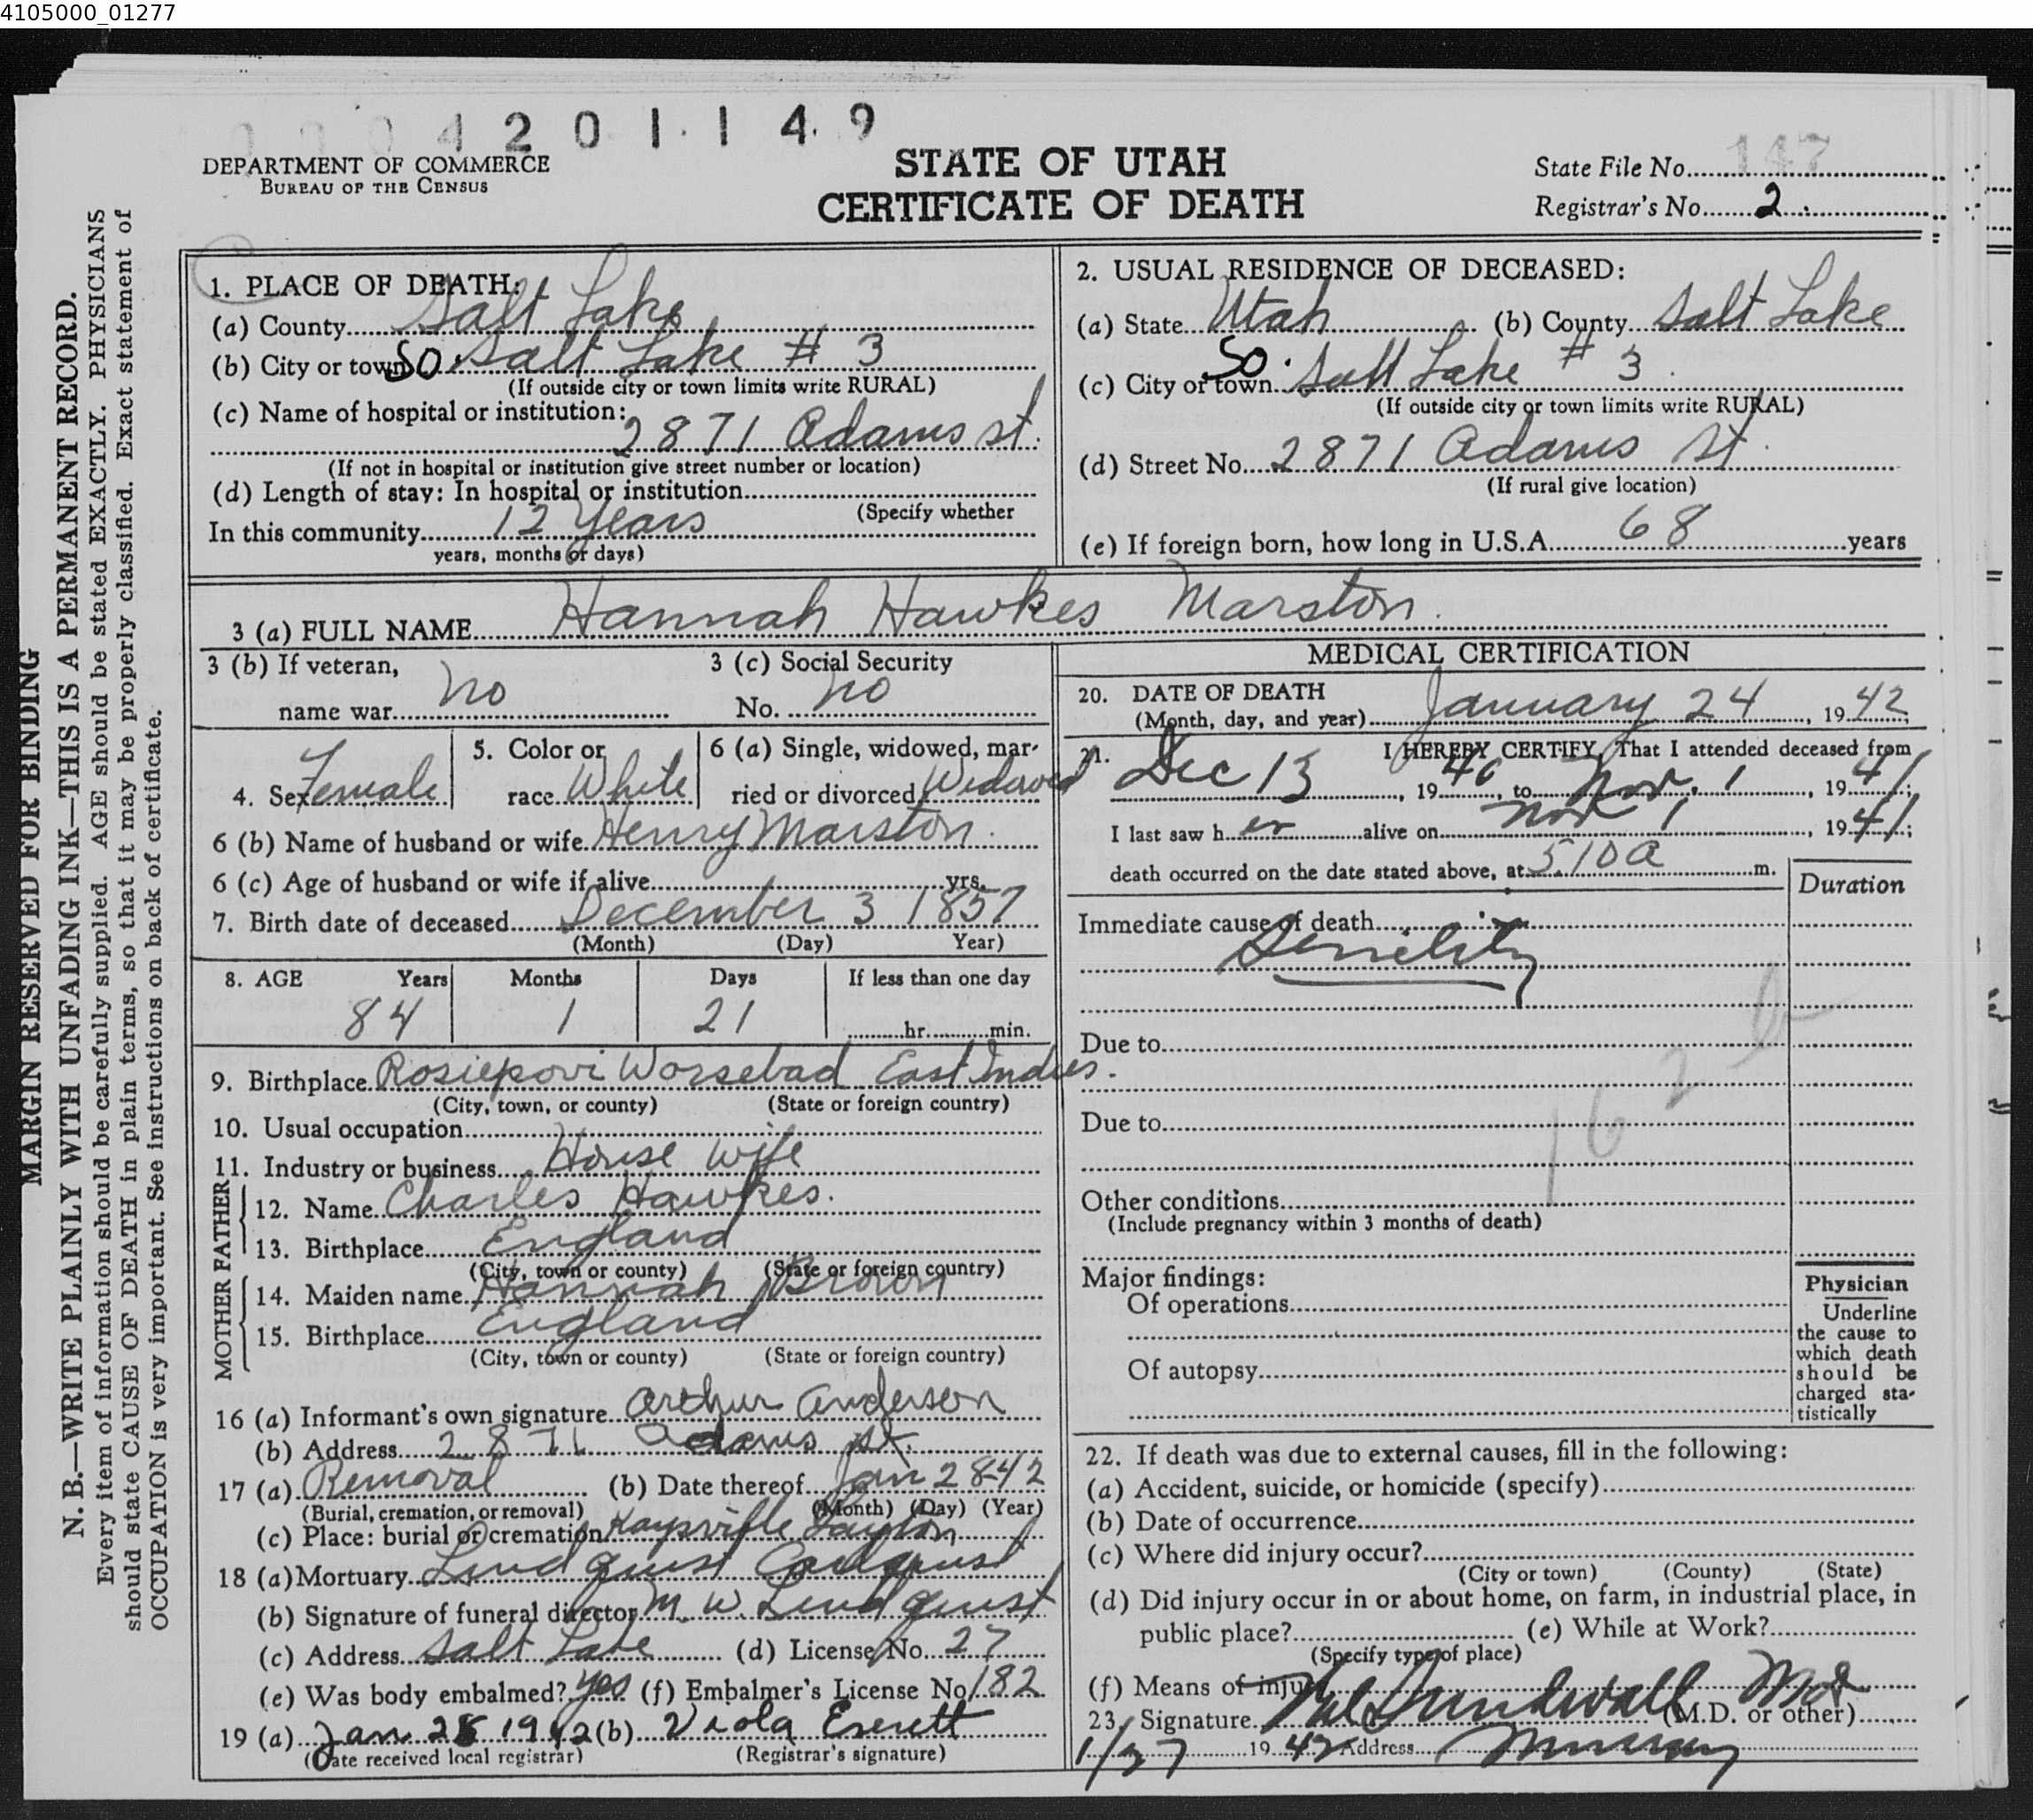 4105000_01277
0004201149
DEPARTMENT OF COMMERCE
BUREAU OF THE CENSUS
STATE OF UTAH
CERTIFICATE OF DEATH
State File No. 147
Registrar's No. 2
MARGIN RESERVED FOR BINDING
N. B.—WRITE PLAINLY WITH UNFADING INK—THIS IS A PERMANENT RECORD.
Every item of information should be carefully supplied. AGE should be stated EXACTLY. PHYSICIANS
should state CAUSE OF DEATH in plain terms, so that it may be properly classified. Exact statement of
OCCUPATION is very important. See instructions on back of certificate.
1. PLACE OF DEATH:
(a) County Salt Lake
(b) City or town So. Salt Lake # 3
(If outside city or town limits write RURAL)
(c) Name of hospital or institution:
2871 Adams st.
(If not in hospital or institution give street number or location)
(d) Length of stay: In hospital or institution
(Specify whether
In this community 12 Years
years, months or days)
2. USUAL RESIDENCE OF DECEASED:
(a) State Utah (b) County Salt Lake
(c) City or town So. Salt Lake # 3
(If outside city or town limits write RURAL)
(d) Street No. 2871 Adams St.
(If rural give location)
(e) If foreign born, how long in U.S.A. 68 years
3 (a) FULL NAME Hannah Hawkes Marston.
3 (b) If veteran,
name war no
3 (c) Social Security
No. no
4. Sex Female
5. Color or
race White
6 (a) Single, widowed, mar-
ried or divorced Widowed
6 (b) Name of husband or wife Henry Marston.
6 (c) Age of husband or wife if alive yrs.
7. Birth date of deceased December 3 1857
(Month) (Day) Year)
8. AGE Years Months Days If less than one day
84 1 21 hr. min.
9. Birthplace Rosiepovi Worsebad East Indies.
(City, town, or county) (State or foreign country)
10. Usual occupation
11. Industry or business House wife
FATHER
12. Name Charles Hawkes.
13. Birthplace England
(City, town or county) (State or foreign country)
MOTHER
14. Maiden name Hannah Brown
15. Birthplace England
(City, town or county) (State or foreign country)
16 (a) Informant's own signature Arthur Anderson
(b) Address 2871 Adams st.
17 (a) Removal (b) Date thereof Jan 28-42
(Burial, cremation, or removal) (Month) (Day) (Year)
(c) Place: burial or cremation Kaysville Layton
18 (a) Mortuary Lindquist
(b) Signature of funeral director M. W. Lindquist
(c) Address Salt Lake (d) License No. 27
(e) Was body embalmed? yes (f) Embalmer's License No 182
19 (a) Jan 28 1942 (b) Viola Everett
(Date received local registrar) (Registrar's signature)
MEDICAL CERTIFICATION
20. DATE OF DEATH
(Month, day, and year) January 24, 1942
21. I HEREBY CERTIFY, That I attended deceased from
Dec 13, 1940, to Nov. 1, 1941;
I last saw her alive on Nov 1, 1941;
death occurred on the date stated above, at 5.10 a m.
Duration
Immediate cause of death
Senility
Due to
162 b
Due to
Other conditions
(Include pregnancy within 3 months of death)
Major findings:
Of operations
Of autopsy
Physician
Underline
the cause to
which death
should be
charged sta-
tistically
22. If death was due to external causes, fill in the following:
(a) Accident, suicide, or homicide (specify)
(b) Date of occurrence
(c) Where did injury occur?
(City or town) (County) (State)
(d) Did injury occur in or about home, on farm, in industrial place, in
public place? (e) While at Work?
(Specify type of place)
(f) Means of injury
23. Signature Sundwall Md (M.D. or other)
1/27 1942 Address Murray